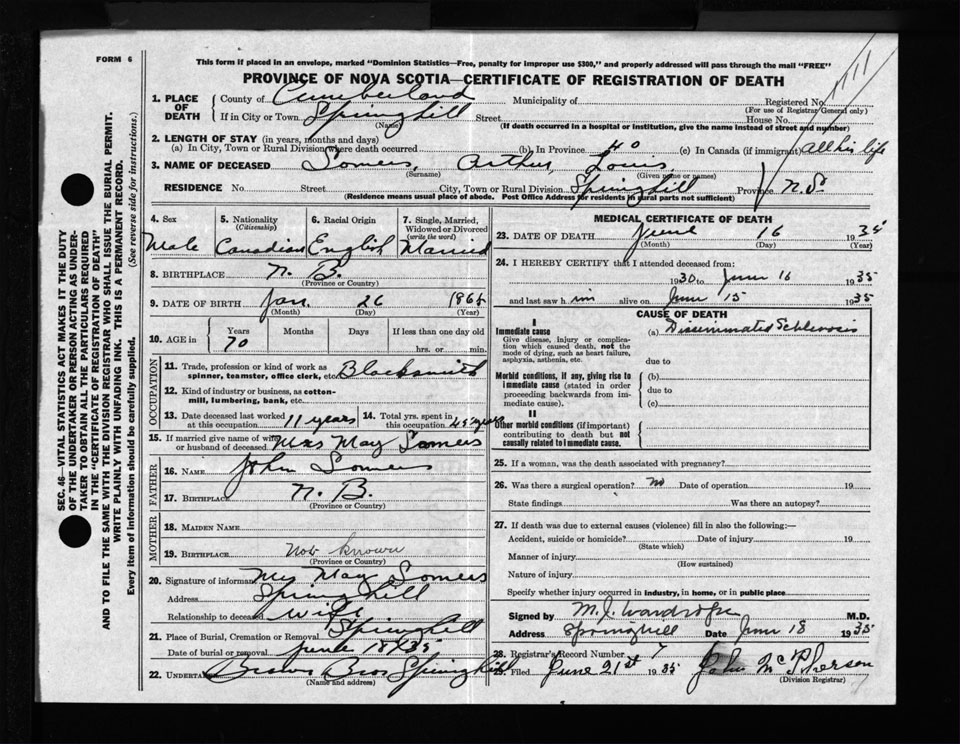 FORM 6
This form if placed in an envelope, marked "Dominion Statistics—Free, penalty for improper use $300," and properly addressed will pass through the mail "FREE"
PROVINCE OF NOVA SCOTIA—CERTIFICATE OF REGISTRATION OF DEATH
1. PLACE OF DEATH
County of Cumberland Municipality of Registered No.
(For use of Registrar General only)
If in City or Town Springhill Street House No.
(Name) (If death occurred in a hospital or institution, give the name instead of street and number)
2. LENGTH OF STAY (in years, months and days)
(a) In City, Town or Rural Division where death occurred (b) In Province 40 (c) In Canada (if immigrant) all his life
3. NAME OF DECEASED Somers, Arthur, Louis
(Surname) (Given name or names)
RESIDENCE No. Street City, Town or Rural Division Springhill Province N.S.
(Residence means usual place of abode. Post Office Address for residents in rural parts not sufficient)
4. Sex Male
5. Nationality (Citizenship) Canadian
6. Racial Origin English
7. Single, Married, Widowed or Divorced (write the word) Married
8. BIRTHPLACE N. B.
(Province or Country)
9. DATE OF BIRTH Jan. 26 1865
(Month) (Day) (Year)
10. AGE in Years Months Days If less than one day old
70 hrs. or min.
OCCUPATION
11. Trade, profession or kind of work as spinner, teamster, office clerk, etc. Blacksmith
12. Kind of industry or business, as cotton-mill, lumbering, bank, etc.
13. Date deceased last worked at this occupation 11 years
14. Total yrs. spent in this occupation 45 years
15. If married give name of wife or husband of deceased Mrs May Somers
FATHER
16. NAME John Somers
17. BIRTHPLACE N. B.
(Province or Country)
MOTHER
18. MAIDEN NAME
19. BIRTHPLACE Not known
(Province or Country)
20. Signature of informant Mrs May Somers
Address Springhill
Relationship to deceased wife
21. Place of Burial, Cremation or Removal Springhill
Date of burial or removal June 18/35
22. UNDERTAKER Brown Bros Springhill
(Name and address)
MEDICAL CERTIFICATE OF DEATH
23. DATE OF DEATH June 16 1935
(Month) (Day) (Year)
24. I HEREBY CERTIFY that I attended deceased from:
1930 to June 16 1935
and last saw him alive on June 15 1935
CAUSE OF DEATH
I
Immediate cause (a) Disseminated Sclerosis
Give disease, injury or complication which caused death, not the mode of dying, such as heart failure, asphyxia, asthenia, etc.
due to
Morbid conditions, if any, giving rise to immediate cause (stated in order proceeding backwards from immediate cause).
(b)
due to
(c)
II
Other morbid conditions (if important) contributing to death but not causally related to immediate cause.
25. If a woman, was the death associated with pregnancy?
26. Was there a surgical operation? no Date of operation 19
State findings Was there an autopsy?
27. If death was due to external causes (violence) fill in also the following:—
Accident, suicide or homicide? Date of injury 19
(State which)
Manner of injury
(How sustained)
Nature of injury
Specify whether injury occurred in industry, in home, or in public place
Signed by M. J. Wardrope M.D.
Address Springhill Date June 18 1935
28. Registrar's Record Number 7
29. Filed June 21st 1935 John McPherson
(Division Registrar)
SEC. 46—VITAL STATISTICS ACT MAKES IT THE DUTY
OF THE UNDERTAKER OR PERSON ACTING AS UNDER-
TAKER TO OBTAIN ALL THE PARTICULARS REQUIRED
IN THE "CERTIFICATE OF REGISTRATION OF DEATH"
AND TO FILE THE SAME WITH THE DIVISION REGISTRAR WHO SHALL ISSUE THE BURIAL PERMIT.
WRITE PLAINLY WITH UNFADING INK. THIS IS A PERMANENT RECORD.
Every item of information should be carefully supplied. (See reverse side for instructions.)